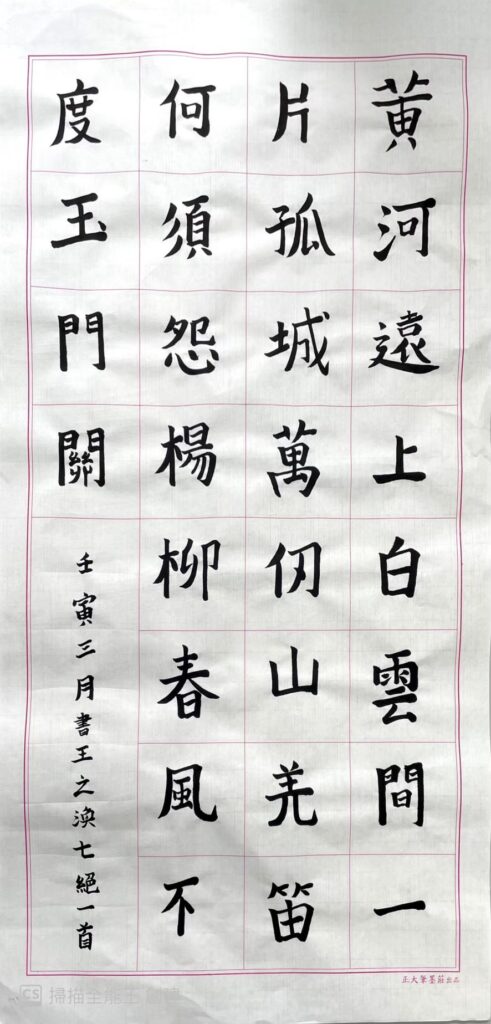 黃河遠上白雲間一
片孤城萬仞山羌笛
何須怨楊柳春風不
度玉門關
壬寅三月書王之渙七絕一首
正大筆墨莊出品
CS 掃描全能王